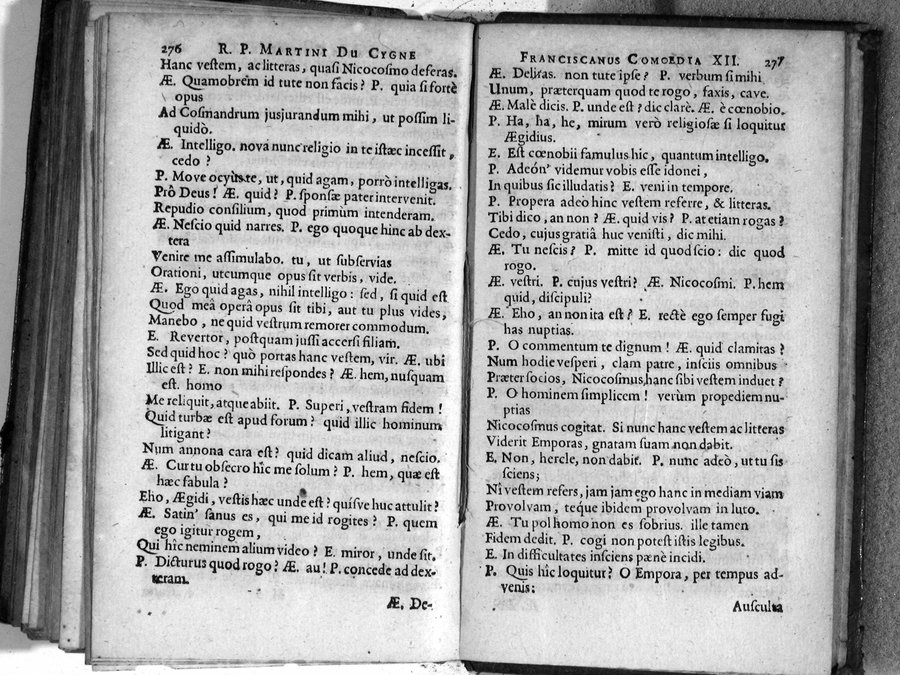 276 R. P. MARTINI DU CYGNE
Hanc veſtem, ac litteras, quaſi Nicocoſmo deferas.
Æ. Quamobrem id tute non facis? P. quia ſi fortè
opus
Ad Coſmandrum jusjurandum mihi, ut poſſim li-
quidò.
Æ. Intelligo. nova nunc religio in te iſtæc inceſſit,
cedo?
P. Move ocyus te, ut, quid agam, porrò intelligas.
Prô Deus! Æ. quid? P. ſponſæ pater intervenit.
Repudio conſilium, quod primùm intenderam.
Æ. Neſcio quid narres. P. ego quoque hinc ab dex-
tera
Venire me aſſimulabo. tu, ut ſubſervias
Orationi, utcumque opus ſit verbis, vide.
Æ. Ego quid agas, nihil intelligo: ſed, ſi quid eſt
Quod meâ operâ opus ſit tibi, aut tu plus vides,
Manebo, ne quid veſtrum remorer commodum.
E. Revertor, poſtquam juſſi accerſi filiam.
Sed quid hoc? quò portas hanc veſtem, vir. Æ. ubi
Illic eſt? E. non mihi reſpondes? Æ. hem, nuſquam
eſt. homo
Me reliquit, atque abiit. P. Superi, veſtram fidem!
Quid turbæ eſt apud forum? quid illic hominum
litigant?
Num annona cara eſt? quid dicam aliud, neſcio.
Æ. Cur tu obſecro hîc me ſolum? P. hem, quæ eſt
hæc fabula?
Eho, Ægidi, veſtis hæc unde eſt? quiſve huc attulit?
Æ. Satin' ſanus es, qui me id rogites? P. quem
ego igitur rogem,
Qui hîc neminem alium video? E. miror, unde ſit.
P. Dicturus quod rogo? Æ. au! P. concede ad dex-
teram.
Æ. De-
FRANCISCANUS COMOEDIA XII. 277
Æ. Deliras. non tute ipſe? P. verbum ſi mihi
Unum, præterquam quod te rogo, faxis, cave.
Æ. Malè dicis. P. unde eſt? dic clarè. Æ. è cœnobio.
P. Ha, ha, he, mirum verò religioſæ ſi loquitur
Ægidius.
E. Eſt cœnobii famulus hic, quantum intelligo.
P. Adeón' videmur vobis eſſe idonei,
In quibus ſic illudatis? E. veni in tempore.
P. Propera adeò hinc veſtem referre, & litteras.
Tibi dico, an non? Æ. quid vis? P. at etiam rogas?
Cedo, cujus gratiâ huc veniſti, dic mihi.
Æ. Tu neſcis? P. mitte id quod ſcio: dic quod
rogo.
Æ. veſtri. P. cujus veſtri? Æ. Nicocoſmi. P. hem
quid, diſcipuli?
Æ. Eho, an non ita eſt? E. rectè ego ſemper fugi
has nuptias.
P. O commentum te dignum! Æ. quid clamitas?
Num hodie veſperi, clam patre, inſciis omnibus
Præter ſocios, Nicocoſmus, hanc ſibi veſtem induet?
P. O hominem ſimplicem! verùm propediem nu-
ptias
Nicocoſmus cogitat. Si nunc hanc veſtem ac litteras
Viderit Emporas, gnatam ſuam non dabit.
E. Non, hercle, non dabit. P. nunc adeò, ut tu ſis
ſciens;
Ni veſtem refers, jam jam ego hanc in mediam viam
Provolvam, teque ibidem provolvam in luto.
Æ. Tu pol homo non es ſobrius. ille tamen
Fidem dedit. P. cogi non poteſt iſtis legibus.
E. In difficultates inſciens pænè incidi.
P. Quis hîc loquitur? O Empora, per tempus ad-
venis:
Auſculta